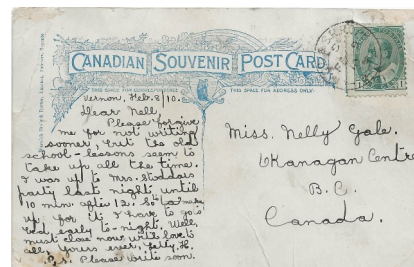 CANADIAN SOUVENIR POST CARD
THIS SPACE FOR CORRESPONDENCE
THIS SPACE FOR ADDRESS ONLY.
Vernon, Feb. 8/10.
Dear Nell,
Please forgive
me for not writing
sooner, but the old
school-lessons seem to
take up all the time.
I was up to Mrs. Stoddars
party last night, until
10 min. after 12. So to make
up, for it, I have to go to
bed, early to-night. Well,
must close now with love to
all. Yours ever,
P.S. Please write soon.
Miss. Nelly Gale.
Okanagan Centre
B.C.
Canada.